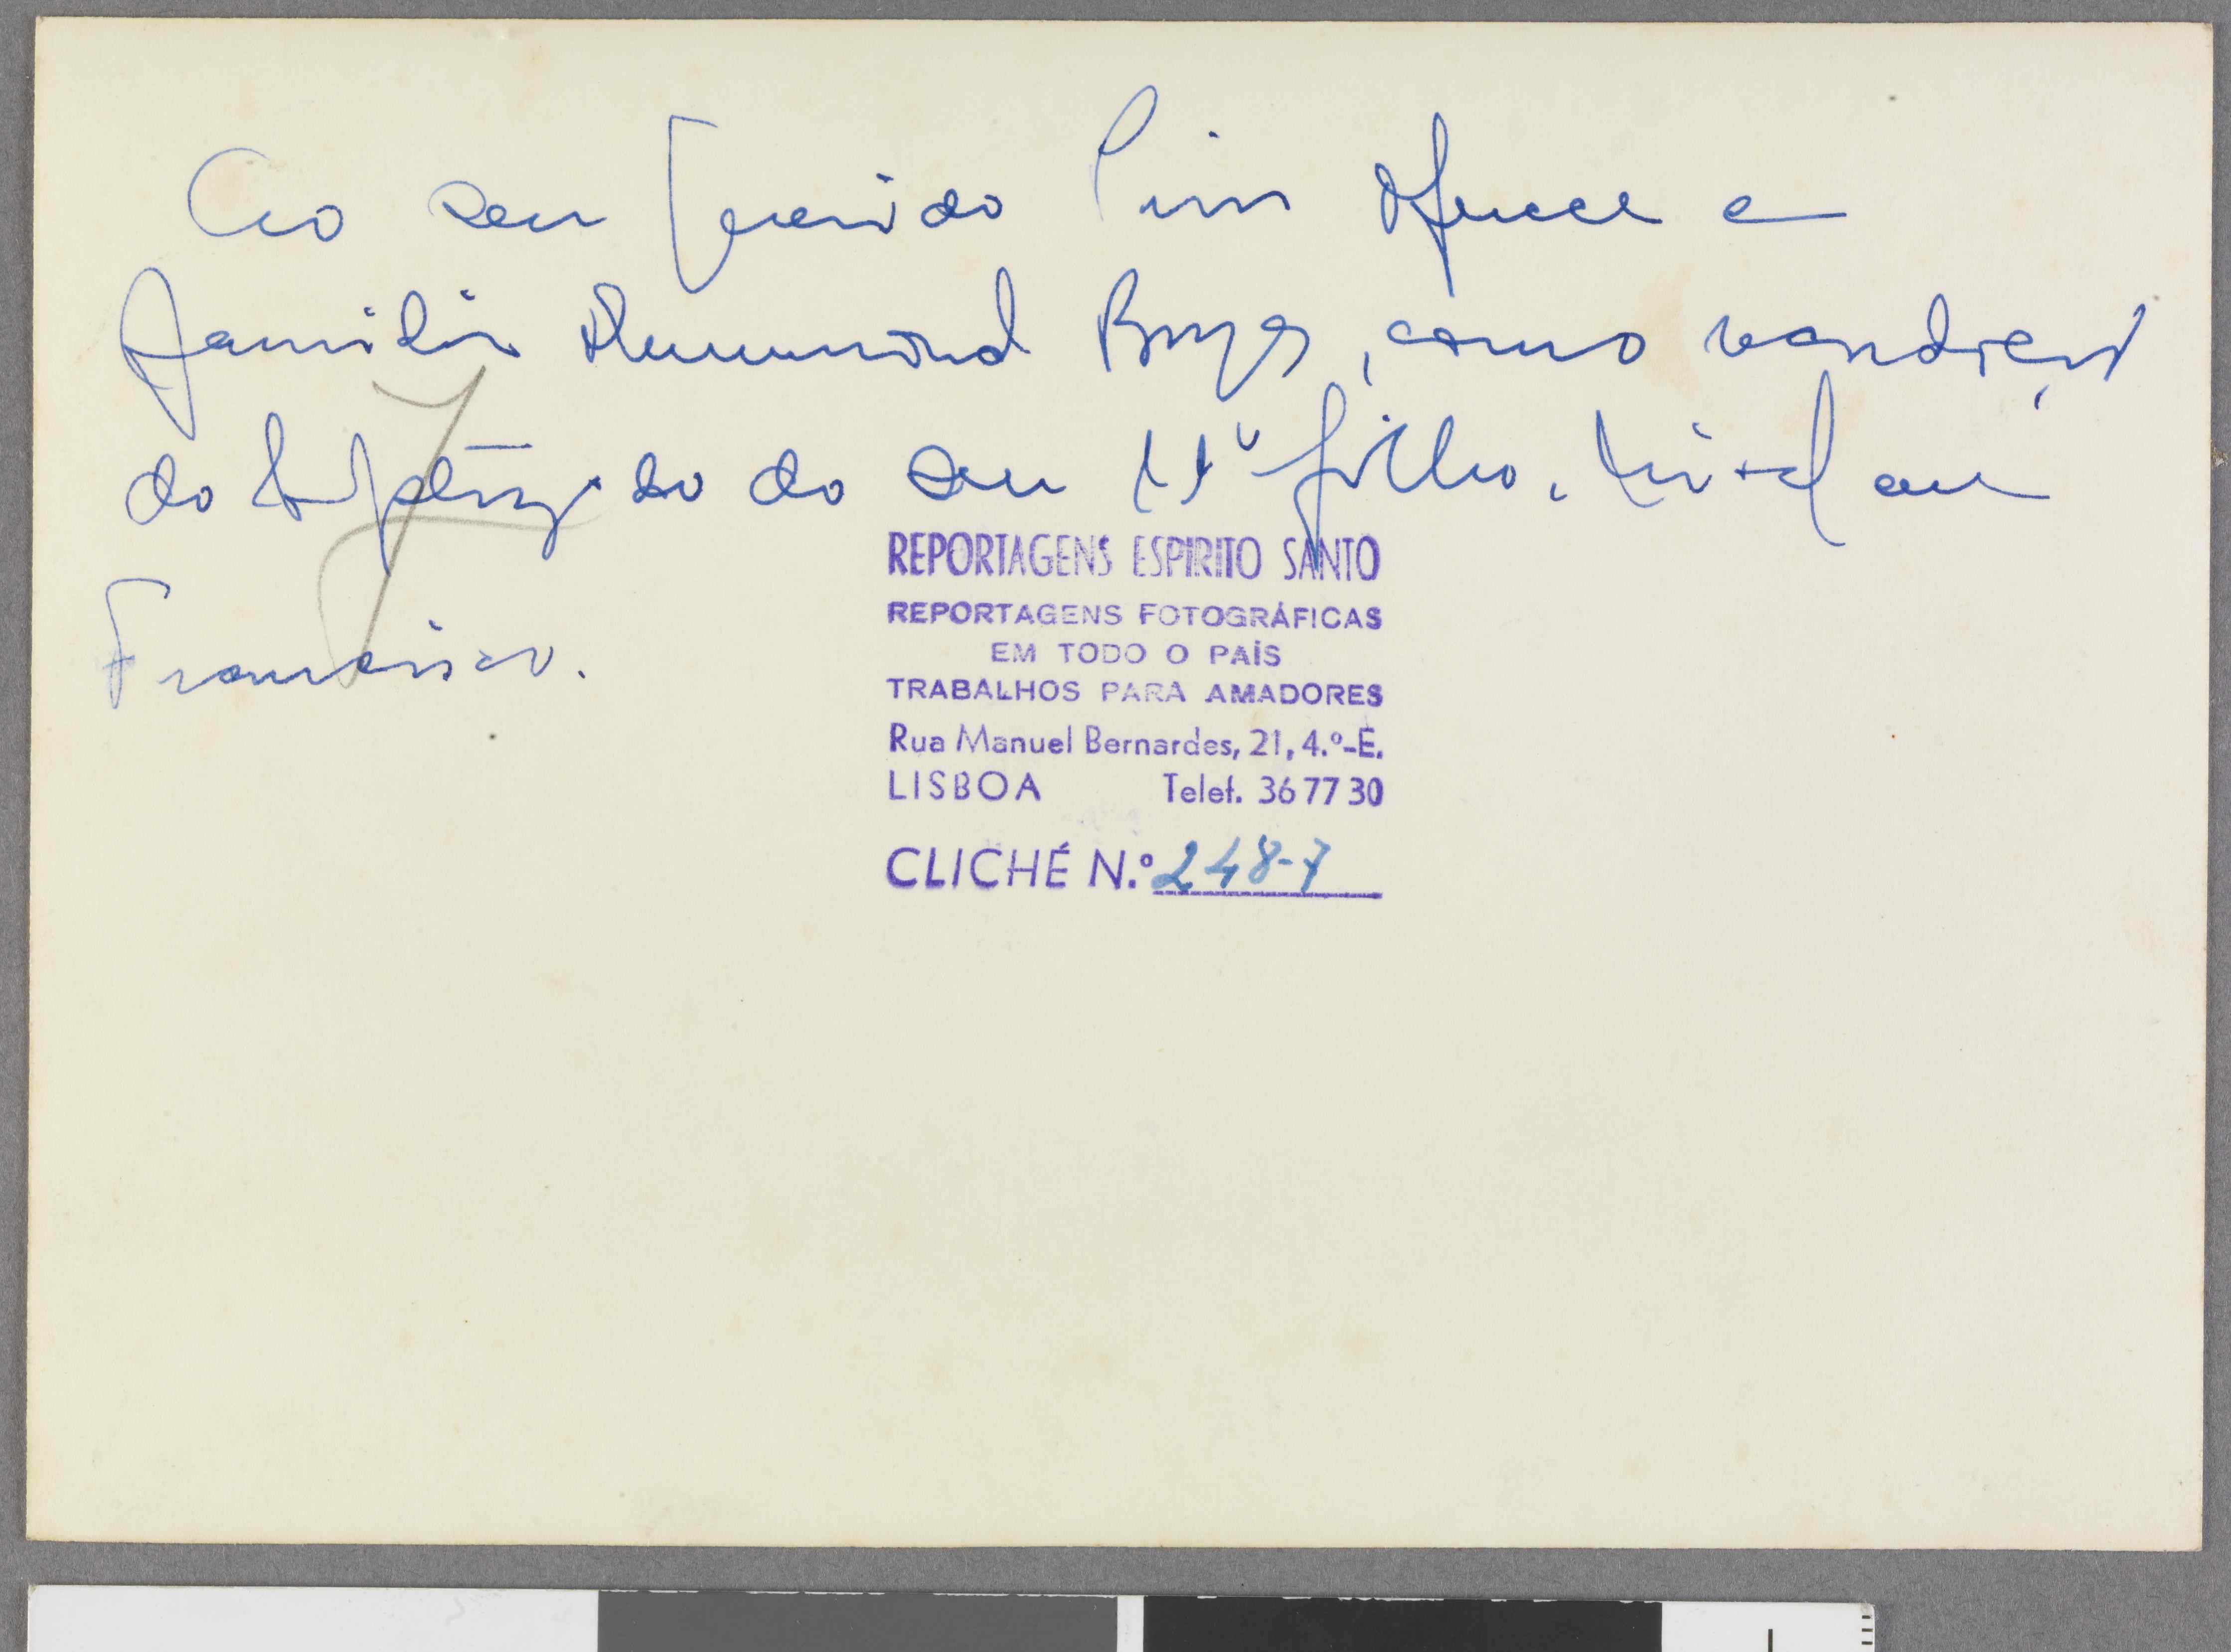 Ao seu querido Primo oferece a
familia Drummond Borges, como
do baptizado do seu 11º filho,
Francisco.
REPORTAGENS ESPIRITO SANTO
REPORTAGENS FOTOGRÁFICAS
EM TODO O PAÍS
TRABALHOS PARA AMADORES
Rua Manuel Bernardes, 21, 4.º-E.
LISBOA Telef. 36 77 30
CLICHÉ N.º 248-7